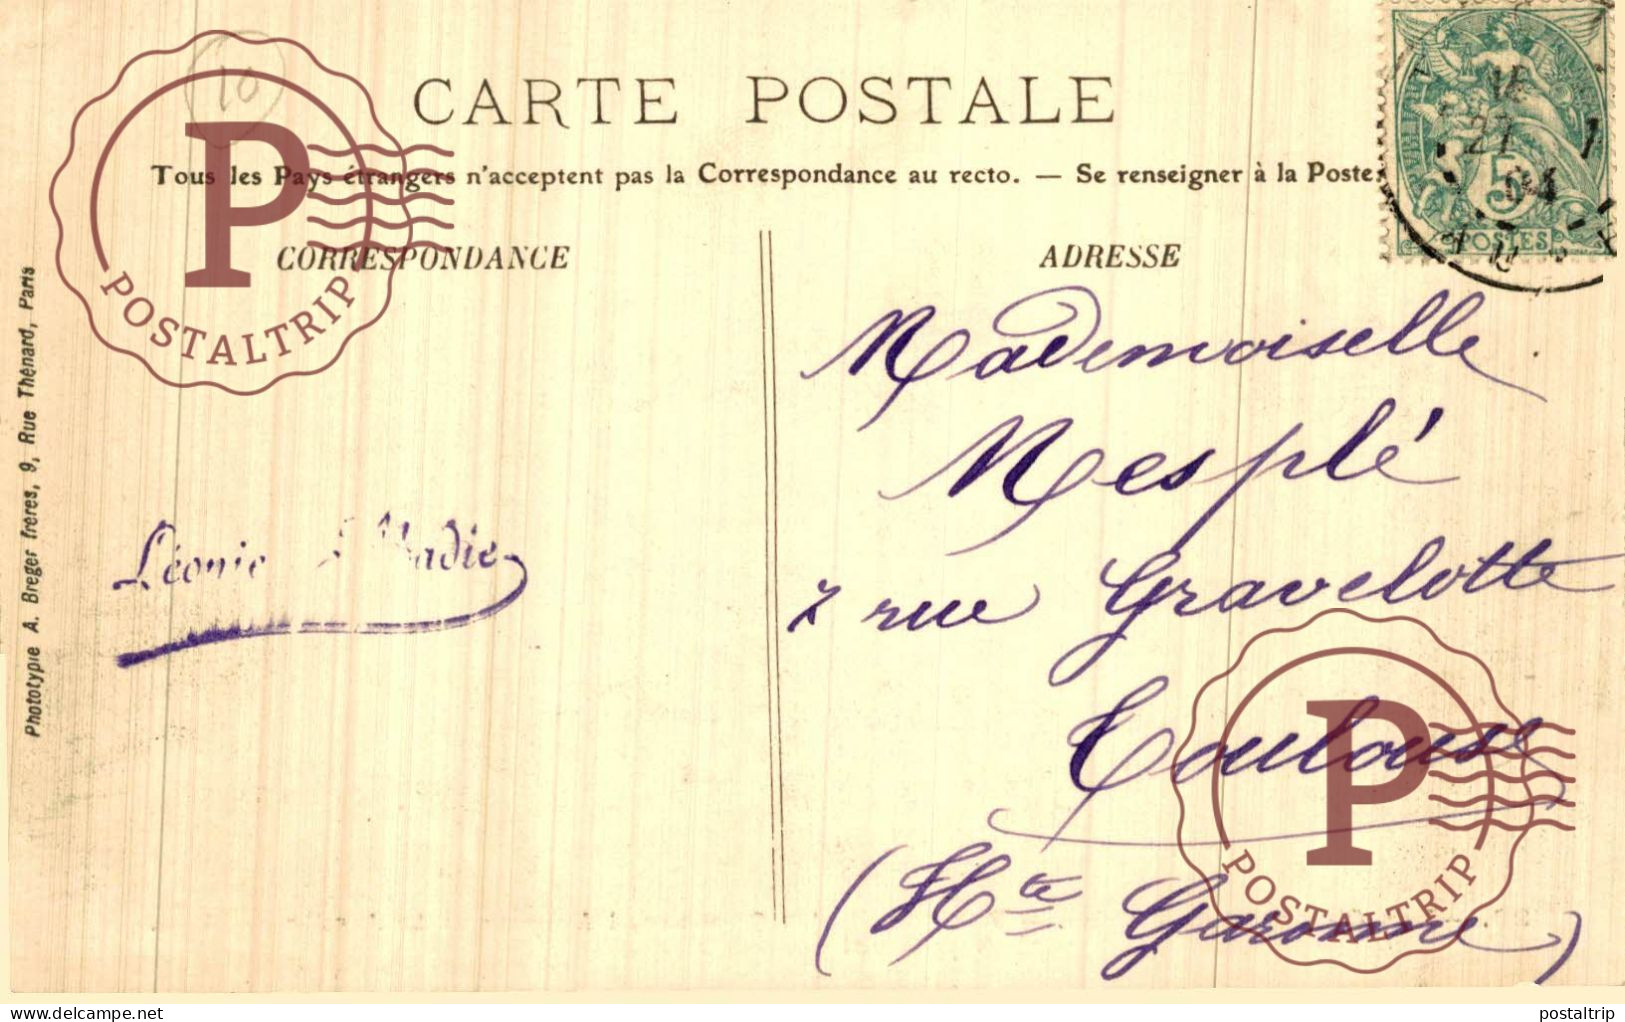 10
CARTE POSTALE
Tous les Pays étrangers n'acceptent pas la Correspondance au recto. — Se renseigner à la Poste.
CORRESPONDANCE
ADRESSE
5
POSTES
27 1
04
Mademoiselle
Mesplé
7 rue Gravelotte
Toulouse
(Hte Garonne)
Léonie Abadie
Phototypie A. Breger frères, 9, Rue Thénard, Paris
P
POSTALTRIP
P
POSTALTRIP
delcampe.net
postaltrip